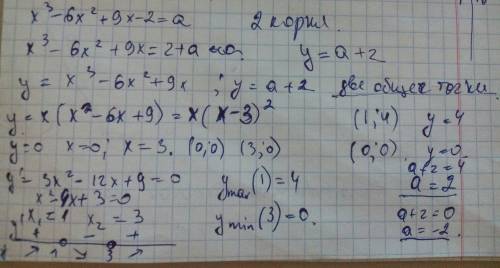 x³-6x²+9x-2=a 2 корня.
x³-6x²+9x=2+a y=a+2
y = x³-6x²+9x ; y=a+2 две общие точки
y=x(x²-6x+9)=x(x-3)² (1;4) y=4
y=0 x=0; x=3. (0;0) (3;0) (0;0) y=0
a+2=4
y'= 3x²-12x+9=0 y max(1)=4 a=2
x²-4x+3=0
x₁=1 x₂=3 y min(3)=0. a+2=0
a=-2.
y' + - +
1 3